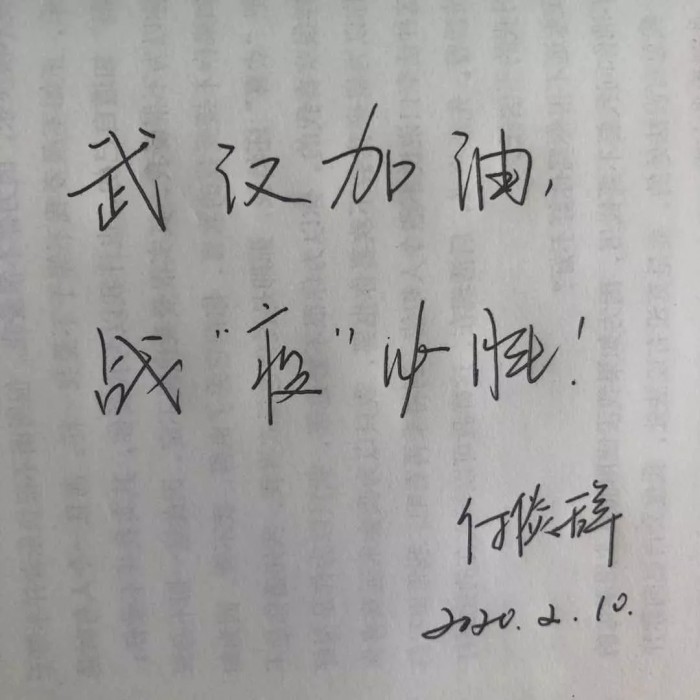 武汉加油,
战"疫"必胜!
2020.2.10.